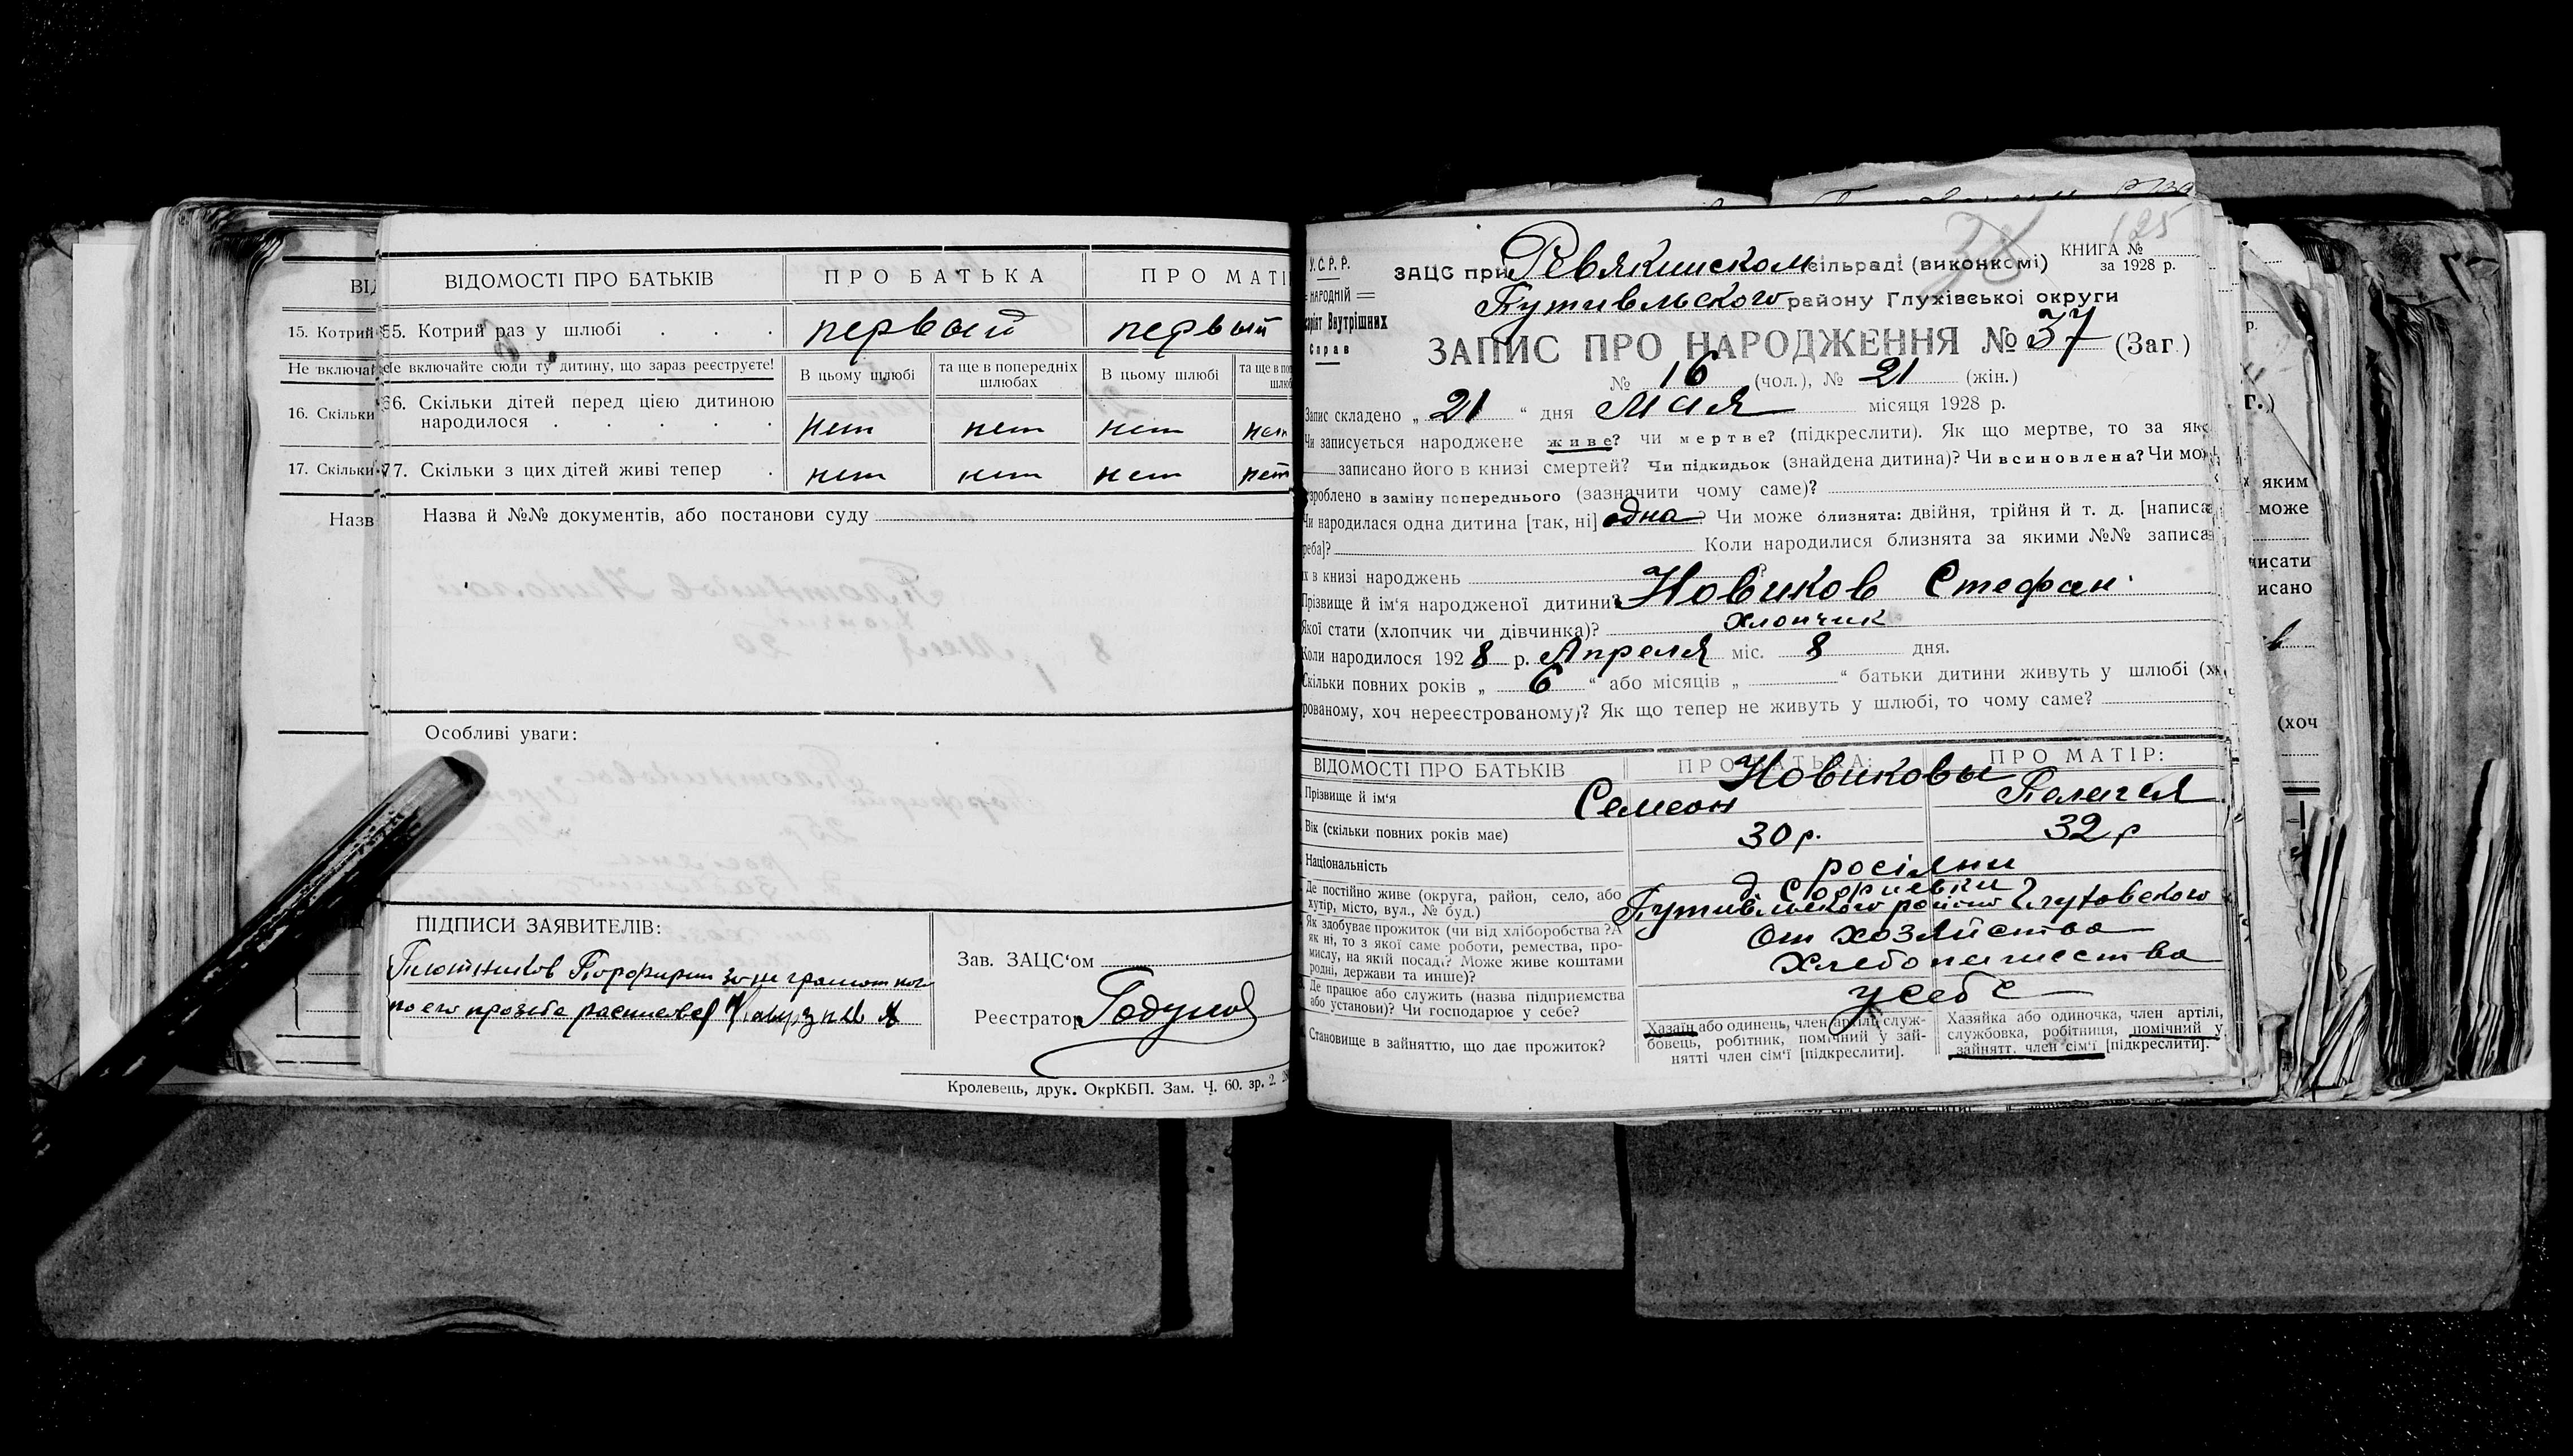 ВІДОМОСТІ ПРО БАТЬКІВ ПРО БАТЬКА ПРО МАТІ
15. Котрий
55. Котрий раз у шлюбі . . . первый первый
Не включай
Не включайте сюди ту дитину, що зараз реєструєте! В цьому шлюбі та ще в попередніх шлюбах В цьому шлюбі та ще в поп
16. Скільки
66. Скільки дітей перед цією дитиною
народилося . . . . . нет нет нет нет
17. Скільки
77. Скільки з цих дітей живі тепер . нет нет нет нет
Назв
Назва й №№ документів, або постанови суду
Особливі уваги:
ПІДПИСИ ЗАЯВИТЕЛІВ:
Плотников Порфирий за не грамотного
по его прозьбе расписался
Зав. ЗАЦС‘ом
Реєстратор Годунов
Кролевець, друк. ОкрКБП. Зам. Ч. 60. зр. 2.
У.С.Р.Р.
НАРОДНІЙ
Внутрішних
Справ
125
КНИГА №
за 1928 р.
ЗАЦС при Ревякинском сільраді (виконкомі)
Путивльского району Глухівської округи
ЗАПИС ПРО НАРОДЖЕННЯ № 37 (Заг.)
№ 16 (чол.), № 21 (жін.)
Запис складено „ 21 “ дня Мая місяця 1928 р.
Чи записується народжене живе? чи мертве? (підкреслити). Як що мертве, то за як
записано його в книзі смертей? Чи підкидьок (знайдена дитина)? Чи всиновлена? Чи мо
зроблено в заміну попереднього (зазначити чому саме)?
Чи народилася одна дитина [так, ні] одна? Чи може близнята: двійня, трійня й т. д. [написа
треба]? Коли народилися близнята за якими №№ записа
їх в книзі народжень ?
Прізвище й ім‘я народженої дитини? Новиков Стефан
Якої стати (хлопчик чи дівчинка)? хлопчик
Коли народилося 1928 р. Апреля міс. 8 дня.
Скільки повних років „ 6 “ або місяців „ “ батьки дитини живуть у шлюбі (х
рованому, хоч нереєстрованому)? Як що тепер не живуть у шлюбі, то чому саме?
ВІДОМОСТІ ПРО БАТЬКІВ ПРО БАТЬКА: ПРО МАТІР:
Новиковы
Прізвище й ім‘я Семеон Пелагея
Вік (скільки повних років має) 30 р. 32 р
Національність росіяни
Де постійно живе (округа, район, село, або
хутір, місто, вул., № буд.)
д. Софиевки
Путивльского района Глуховского
Як здобуває прожиток (чи від хліборобства? А
як ні, то з якої саме роботи, ремества, про-
мислу, на якій посаді? Може живе коштами
родні, держави та инше)?
От хозяйства
хлебопашества
Де працює або служить (назва підприємства
або установи)? Чи господарює у себе?
у себе
Становище в зайняттю, що дає прожиток?
Хазаїн або одинець, член артілі, служ-
бовець, робітник, помічний у зай-
нятті член сім‘ї [підкреслити].
Хазяйка або одиночка, член артілі,
службовка, робітниця, помічний у
зайнятт. член сім‘ї [підкреслити].
яким
може
писати
исано
(хоч